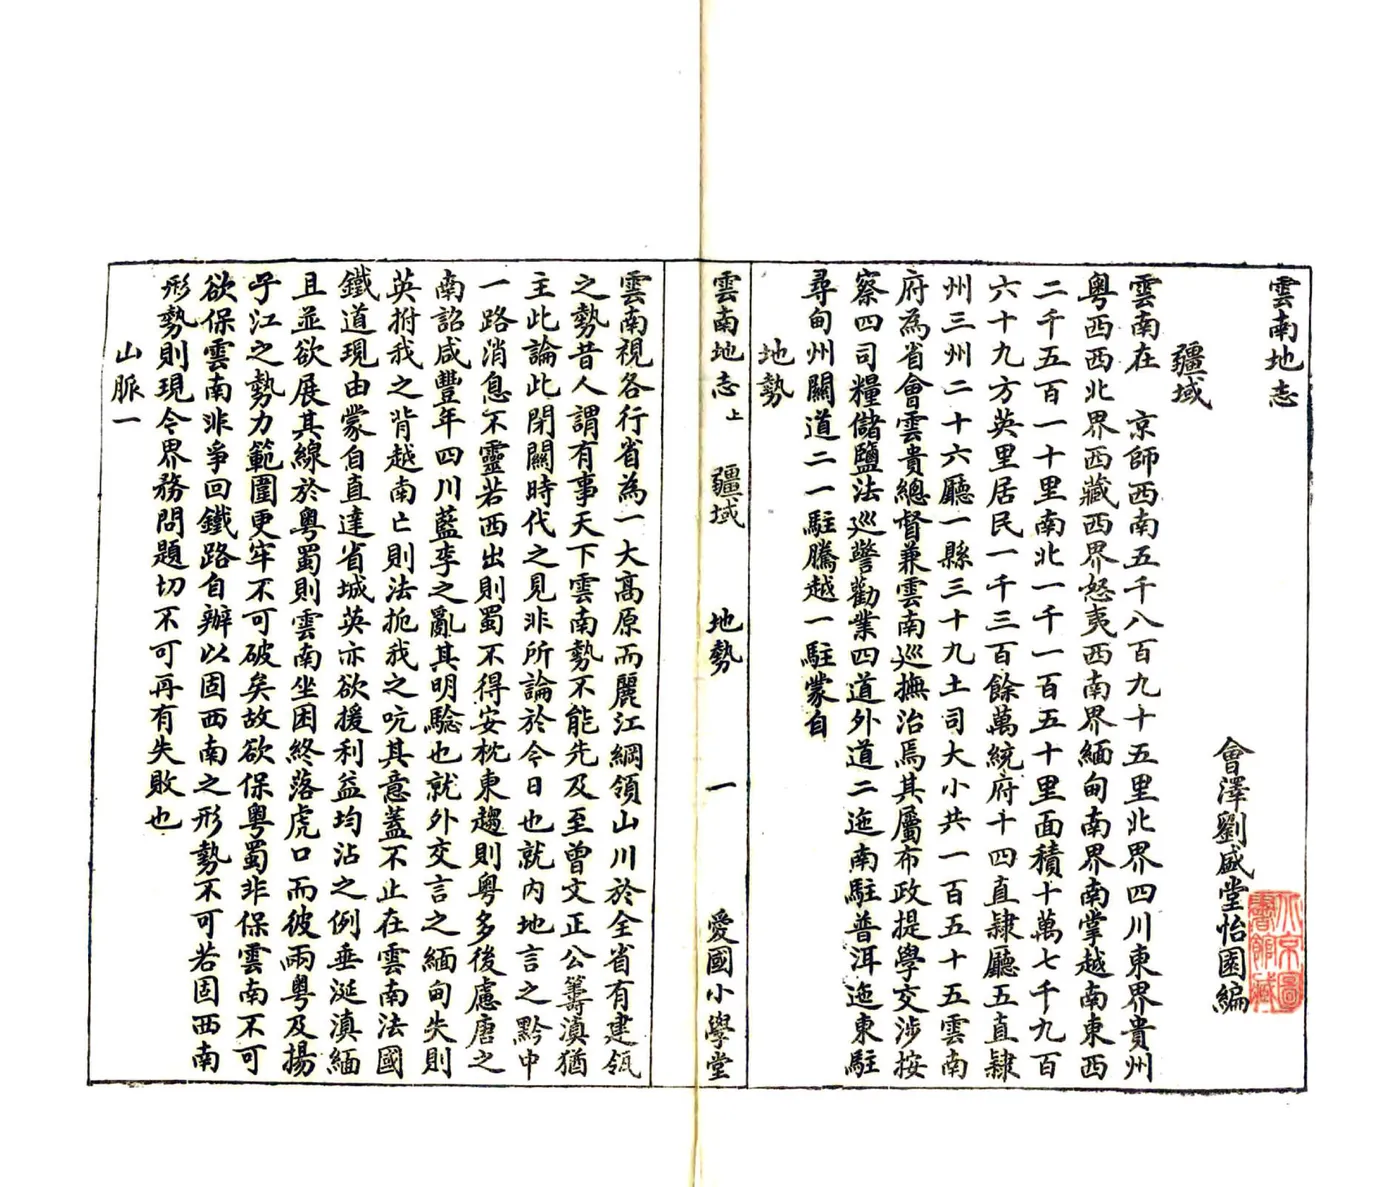 雲南地志
會澤劉盛堂怡園編
疆域
雲南在 京師西南五千八百九十五里北界四川東界貴州
粵西西北界西藏西界怒夷西南界緬甸南界南掌越南東西
二千五百一十里南北一千一百五十里面積十萬七千九百
六十九方英里居民一千三百餘萬統府十四直隸廳五直隸
州三州二十六廳一縣三十九土司大小共一百五十五雲南
府為省會雲貴總督兼雲南巡撫治焉其屬布政提學交涉按
察四司糧儲鹽法巡警勸業四道外道二迤南駐普洱迤東駐
尋甸州關道二一駐騰越一駐蒙自
地勢
雲南地志上 疆域 地勢 一 愛國小學堂
雲南視各行省為一大高原而麗江綱領山川於全省有建瓴
之勢昔人謂有事天下雲南勢不能先及至曾文正公籌滇猶
主此論此閉關時代之見非所論於今日也就內地言之黔中
一路消息不靈若西出則蜀不得安枕東趨則粵多後慮唐之
南詔咸豐年四川藍李之亂其明驗也就外交言之緬甸失則
英拊我之背越南亡則法扼我之吭其意蓋不止在雲南法國
鐵道現由蒙自直達省城英亦欲援利益均沾之例垂涎滇緬
且並欲展其線於粵蜀則雲南坐困終落虎口而彼兩粵及揚
子江之勢力範圍更牢不可破矣故欲保粵蜀非保雲南不可
欲保雲南非爭回鐵路自辦以固西南之形勢不可若固西南
形勢則現今界務問題切不可再有失敗也
山脈一
京師圖書館藏